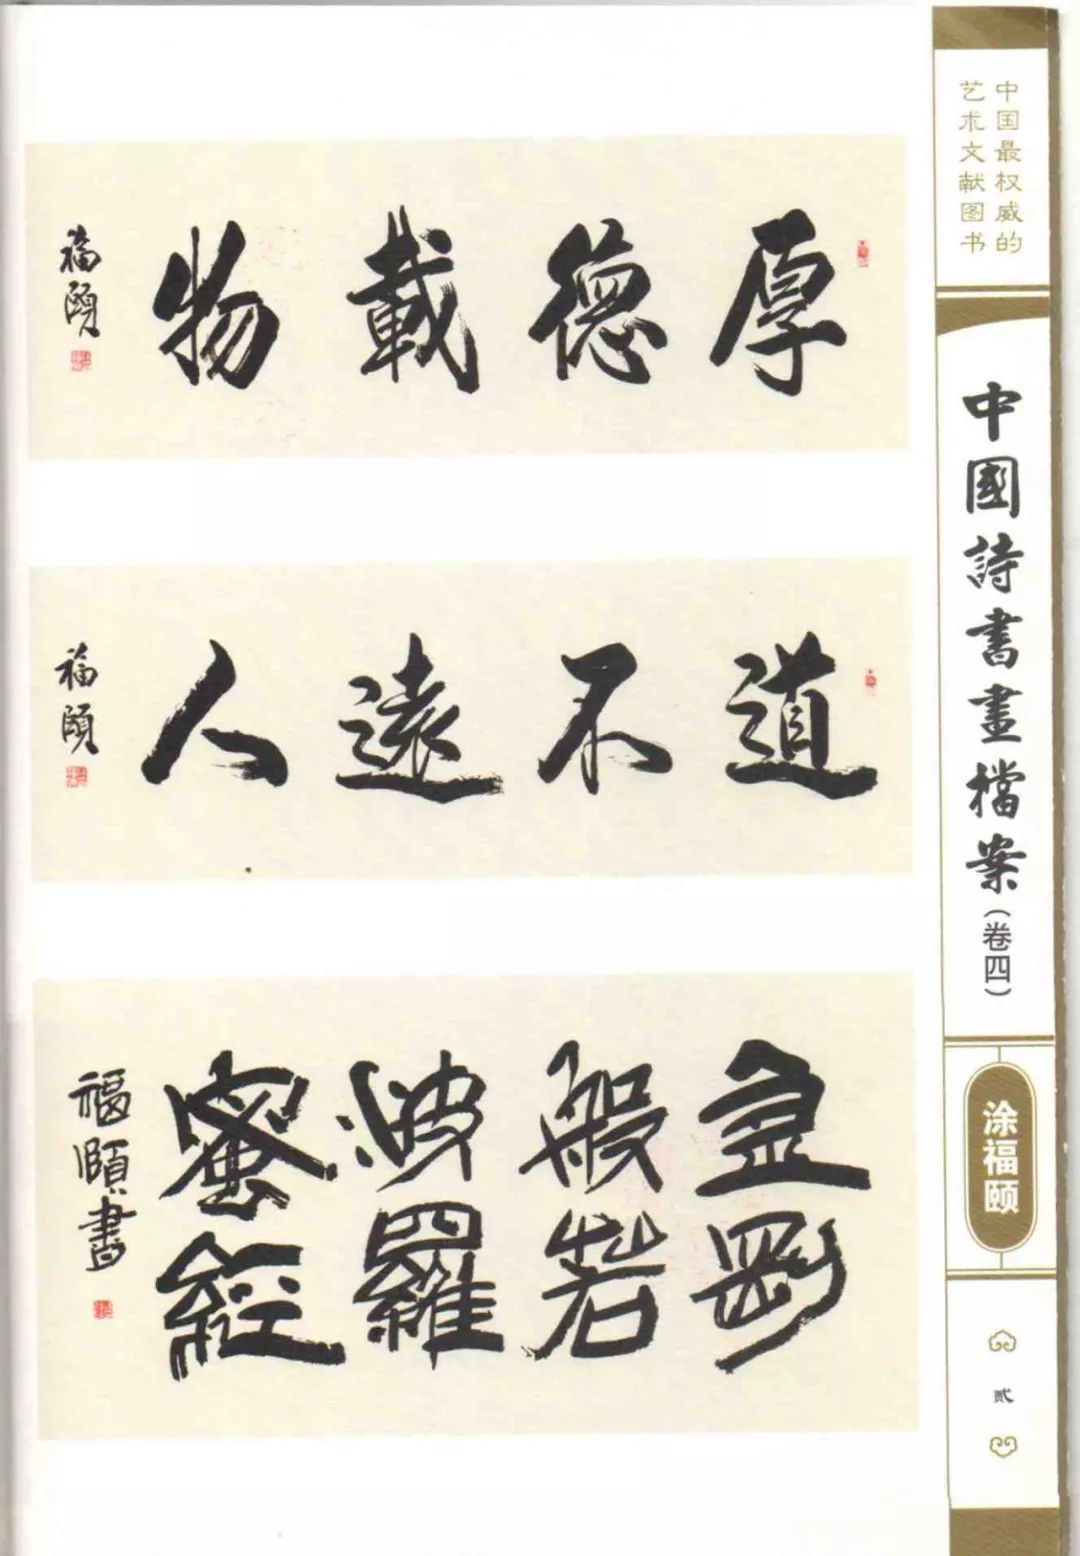 厚德載物
福頤
道不遠人
福頤
金剛
般若
波羅
蜜經
福頤書
中国最权威的
艺术文献图书
中國詩書畫檔案(卷四)
涂福颐
贰